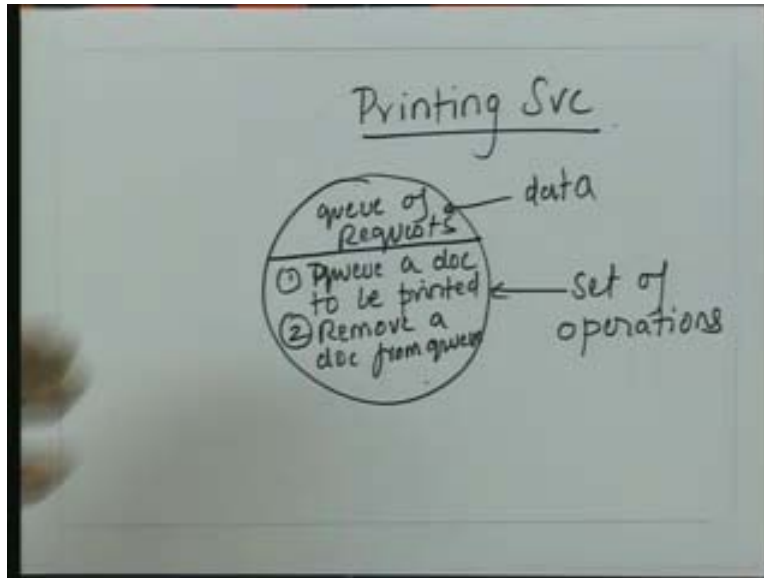 Printing Svc
queue of
Requests
data
① Queue a doc
to be printed
② Remove a
doc from queue
set of
operations